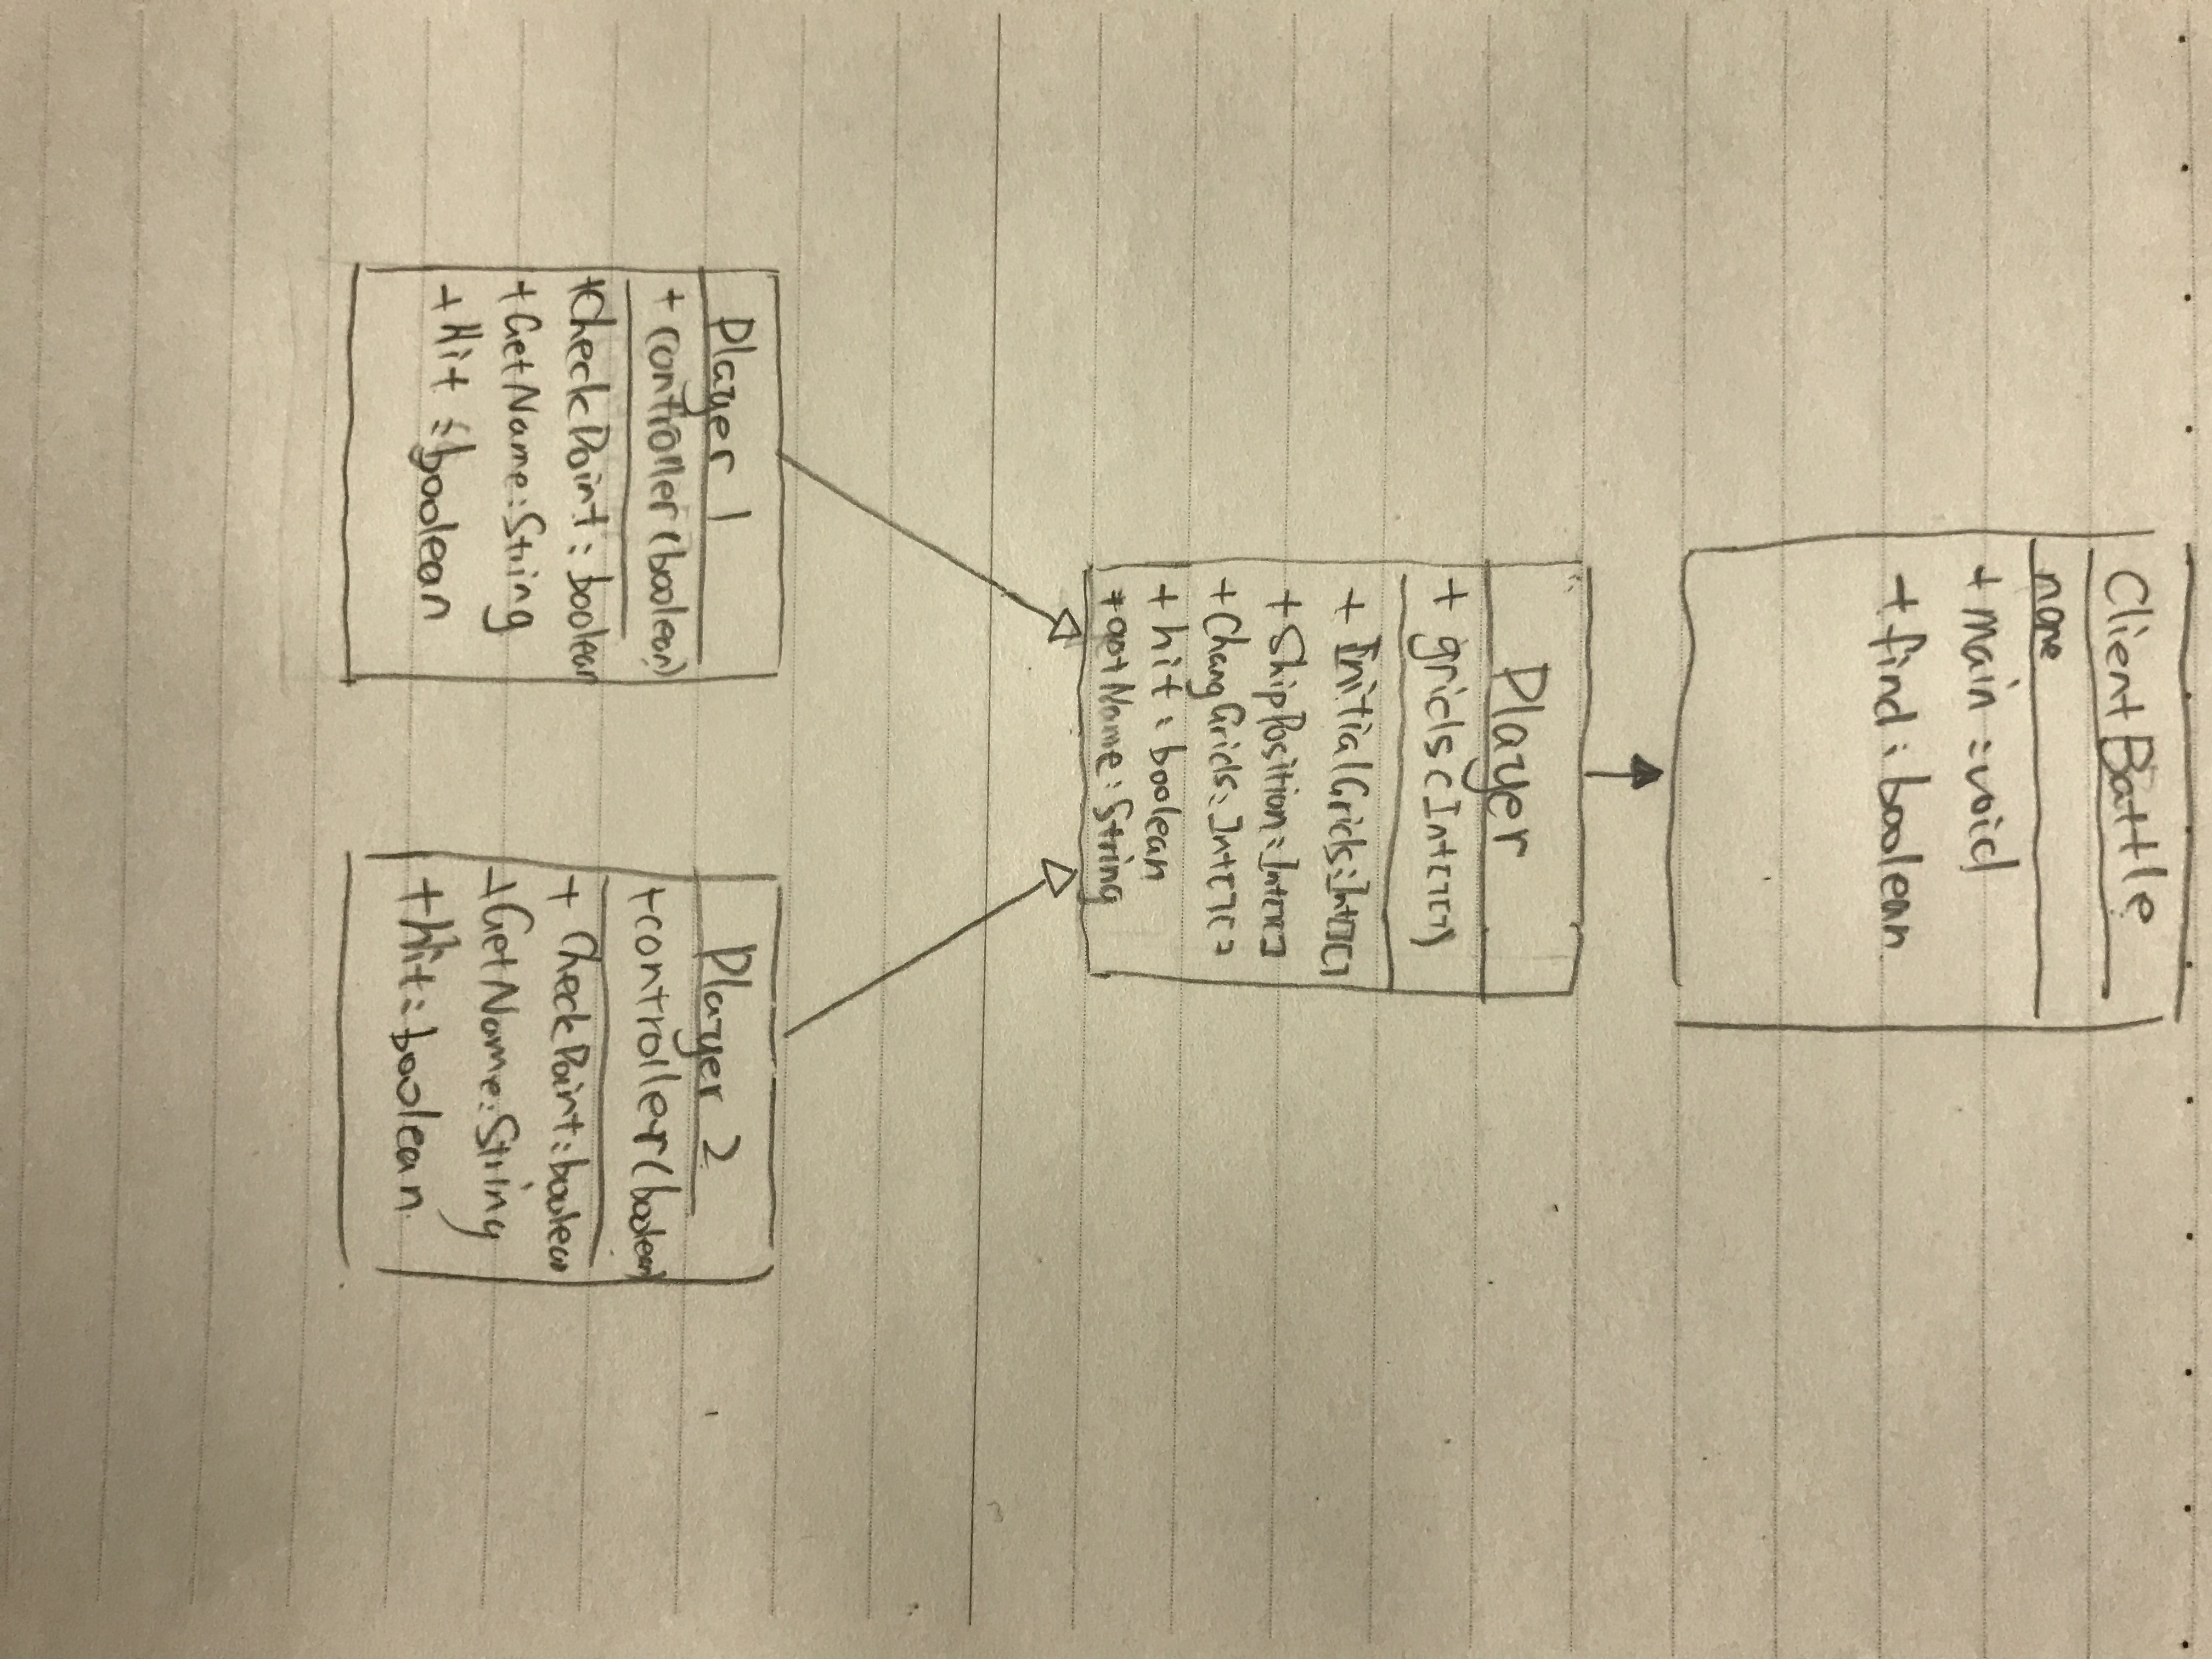 ClientBattle
none
+ main : void
+ find : boolean
Player
+ grids (Int[][])
+ InitialGrids : Int[][]
+ ShipPosition : Int[][]
+ ChangGrids : Int[][]
+ hit : boolean
+ getName : String
Player 1
+ controller (boolean)
+ CheckPoint : boolean
+ GetName : String
+ Hit : boolean
Player 2
+ controller (boolean)
+ CheckPoint : boolean
+ GetName : String
+ hit : boolean